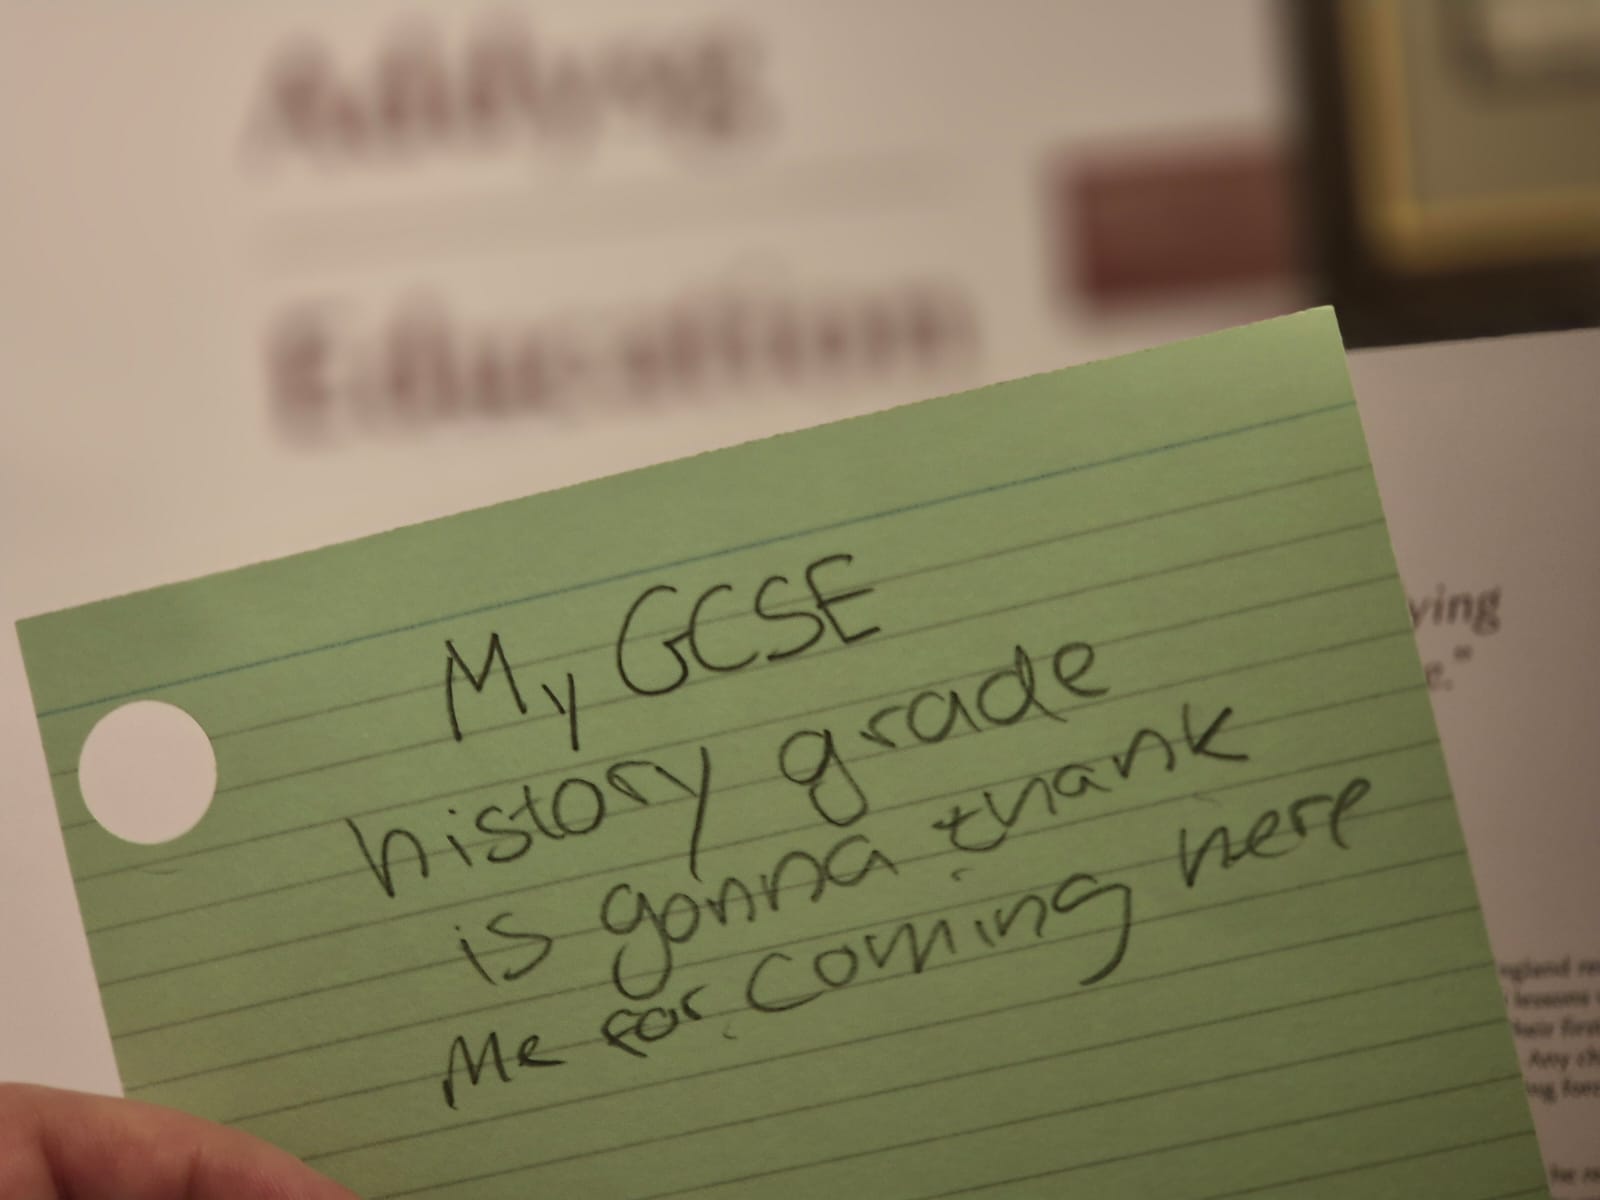 Education
My GCSE
history grade
is gonna thank
Me for coming here
ying
e."
ngland re
lessons
their firs
Any ch
ng forc
he